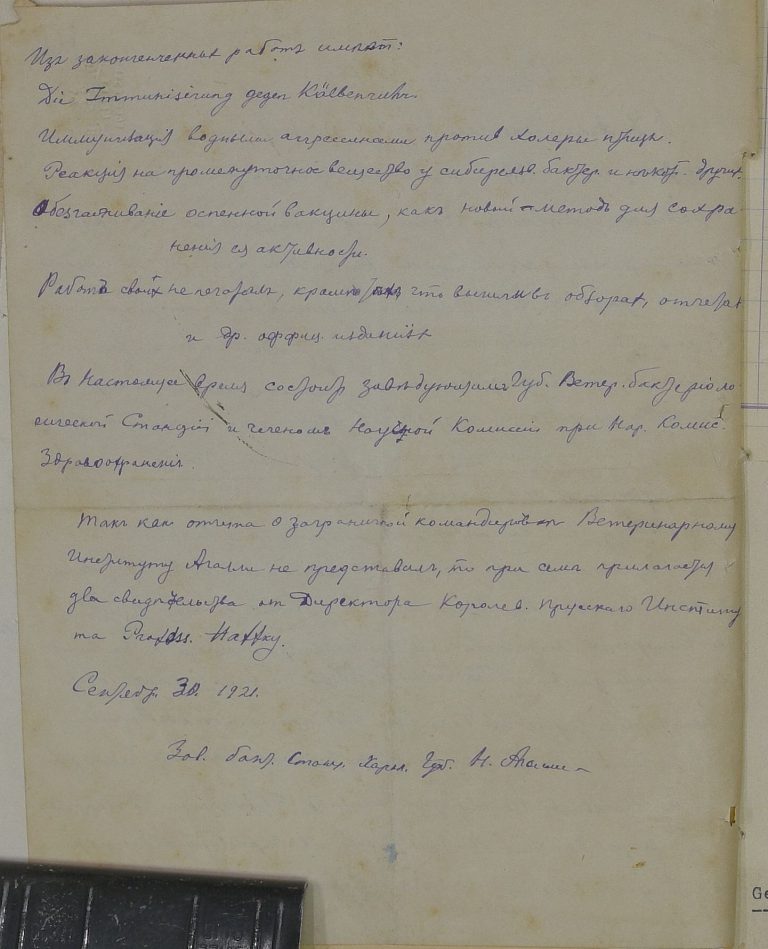 Изъ законченныхъ работъ имѣют:
Die Immunisierung gegen Kälberruhr.
Иммунизація водными аггрессинами против холеры птицъ.
Реакція на промежуточное вещество у сибиреязв. бактер. и нѣкот. других.
Обезгаживаніе оспенной вакцины, какъ новой методъ для сохра
ненія ея активности.
Работъ своихъ не печаталъ, кромѣ что вышли въ обзорах, отчетах
и др. оффиц. изданіях
Въ настоящее время состоитъ завѣдующимъ Губ. Ветер. бактеріоло
гической Станціи и членомъ Научной Комиссіи при Нар. Комис.
Здравоохраненія.
Такъ как отчета о заграничной командировкѣ Ветеринарному
Институту Агалли не представилъ, то при семъ прилагается
два свидѣтельства от Директора Королев. Прусскаго Институ
та Profess.
Сентябр. 30. 1921.
Зав. бакт. Станц. Харьк. Губ. Н.